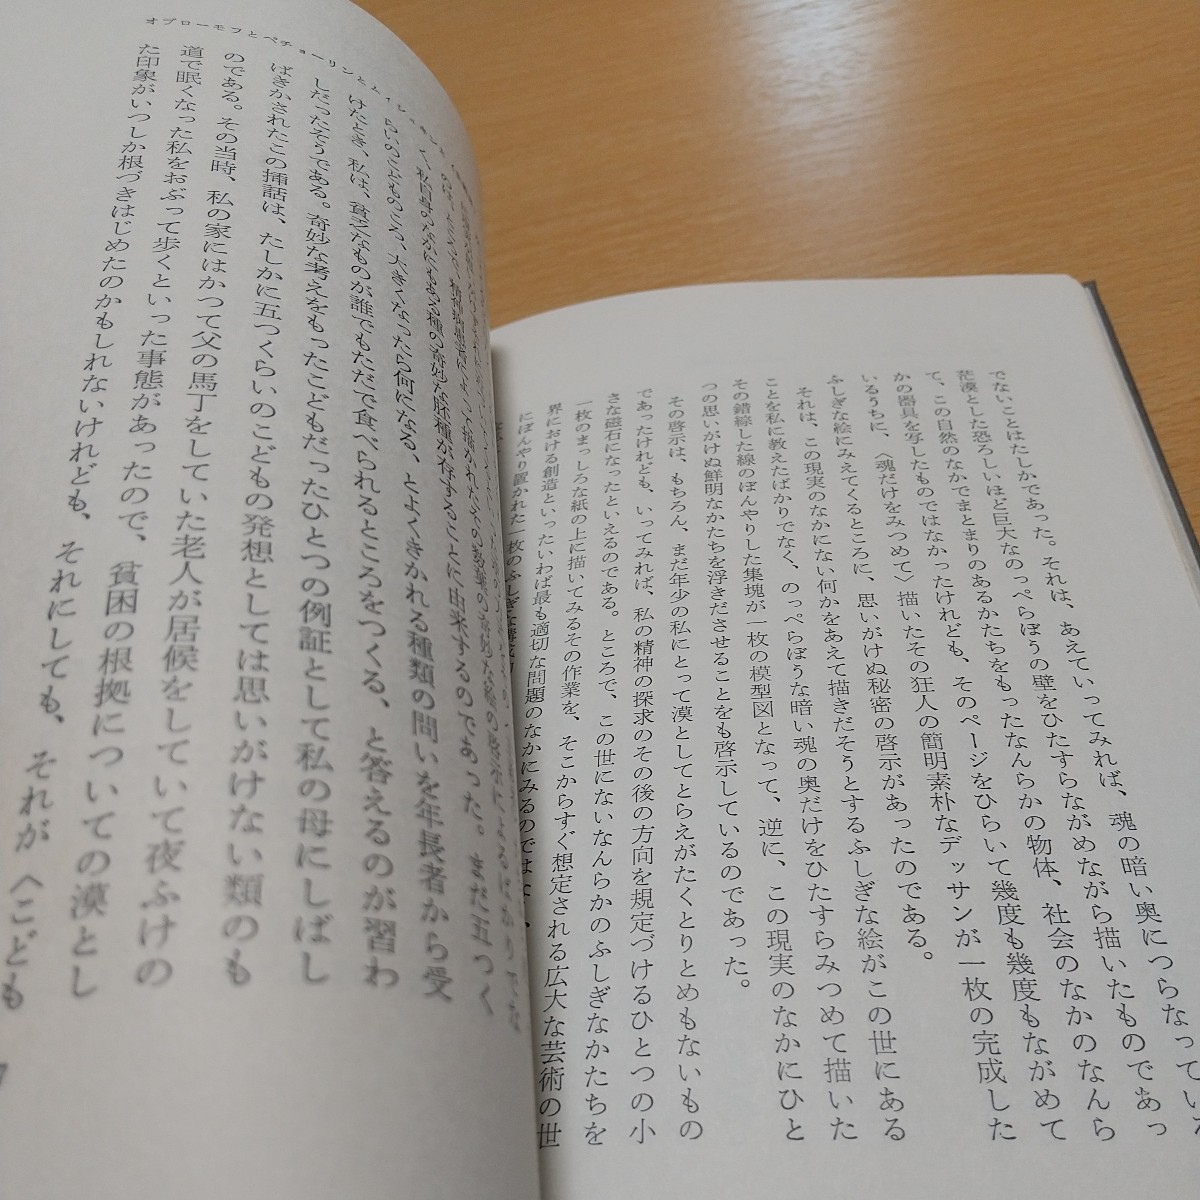 でないことはたしかであった。それは、あえていってみれば、魂の暗い奥につらなってい
茫漠とした恐ろしいほど巨大なのっぺらぼうの壁をひたすらながめながら描いたものであっ
て、この自然のなかでまとまりのあるかたちをもったなんらかの物体、社会のなかのなんら
かの器具を写したものではなかったけれども、そのページをひらいて幾度も幾度もながめて
いるうちに、〈魂だけをみつめて〉描いたその狂人の簡明素朴なデッサンが一枚の完成した
ふしぎな絵にみえてくるところに、思いがけぬ秘密の啓示があったのである。
それは、この現実のなかにない何かをあえて描きだそうとするふしぎな絵がこの世にある
ことを私に教えたばかりでなく、のっぺらぼうな暗い魂の奥だけをひたすらみつめて描いた
その錯綜した線のぼんやりした集塊が一枚の模型図となって、逆に、この現実のなかにひと
つの思いがけぬ鮮明なかたちを浮きださせることをも啓示しているのであった。
その啓示は、もちろん、まだ年少の私にとって漠としてとらえがたくとりとめもないもの
であったけれども、いってみれば、私の精神の探求のその後の方向を規定づけるひとつの小
さな磁石になったといえるのである。ところで、この世にないなんらかのふしぎなかたちを
一枚のまっしろな紙の上に描いてみるその作業を、そこからすぐ想定される広大な芸術の世
界における創造といったいわば最も適切な問題のなかにみるのではなく、
にぼんやり置かれた一枚のふしぎな
オブローモフとペチョーリンとムイシュキンと
精神病患者によって描かれたその数葉の奇妙な絵の啓示によるばかりでな
く、私自身のなかにもある種の奇妙な胚種が存することに由来するのであった。まだ五つく
らいのこどものころ、大きくなったら何になる、とよくきかれる種類の問いを年長者から受
けたとき、私は、貧乏なものが誰でもただで食べられるところをつくる、と答えるのが習わ
しだったそうである。奇妙な考えをもったこどもだったひとつの例証として私の母にしばし
ばきかされたこの挿話は、たしかに五つくらいのこどもの発想としては思いがけない類のも
のである。その当時、私の家にはかつて父の馬丁をしていた老人が居候をしていて夜ふけの
道で眠くなった私をおぶって歩くといった事態があったので、貧困の根拠についての漠とし
た印象がいつしか根づきはじめたのかもしれないけれども、それにしても、それが〈こども
7